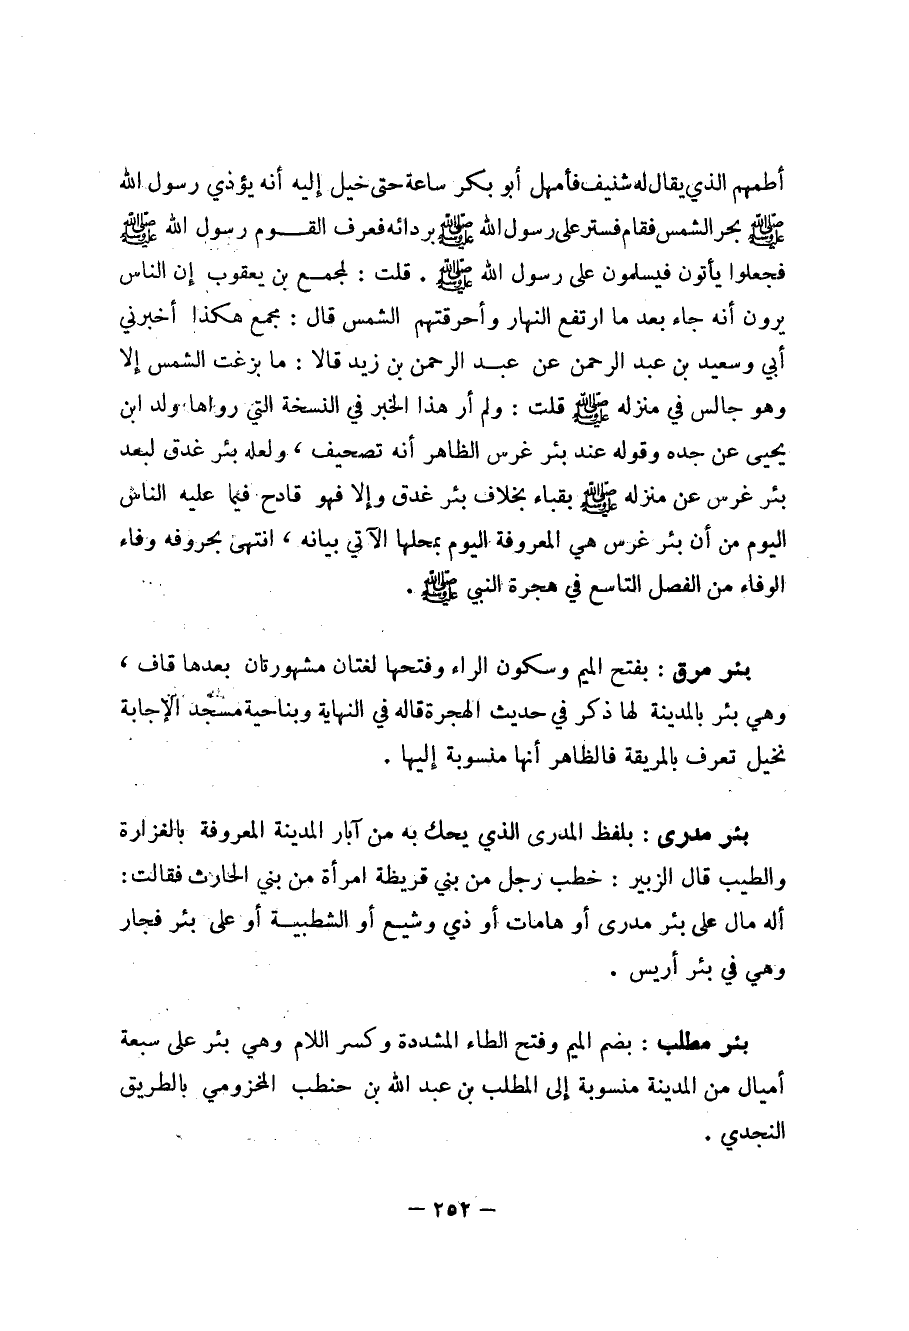 أطمهم الذي يقال له شنيف فأمهل أبو بكر ساعة حتى خيل إليه أنه يؤذي رسول الله
ﷺ بحر الشمس فقام فستر على رسول الله ﷺ بردائه فعرف القـــوم رسول الله ﷺ
فجعلوا يأتون فيسلمون على رسول الله ﷺ . قلت : لمجمـع بن يعقوب إن الناس
يرون أنه جاء بعد ما ارتفع النهار وأحرقتهم الشمس قال : مجمع هكذا أخبرني
أبي وسعيد بن عبد الرحمن عن عبــد الرحمن بن زيد قالا : ما بزغت الشمس إلا
وهو جالس في منزله ﷺ قلت : ولم أر هذا الخبر في النسخة التي رواها ولد ابن
يحيى عن جده وقوله عند بئر غرس الظاهر أنه تصحيف ، ولعله بئر غدق لبعد
بئر غرس عن منزله ﷺ بقباء بخلاف بئر غدق وإلا فهو قادح فيما عليه الناس
اليوم من أن بئر غرس هي المعروفة اليوم بمحلها الآتي بيانه ، انتهى بحروفه وفاء
الوفاء من الفصل التاسع في هجرة النبي ﷺ .
بئر مرق : بفتح الميم وسكون الراء وفتحها لغتان مشهورتان بعدها قاف ،
وهي بئر بالمدينة لها ذكر في حديث الهجرة قاله في النهاية وبناحية مسجد الإجابة
نخيل تعرف بالمريقة فالظاهر أنها منسوبة إليها .
بئر مدرى : بلفظ المدرى الذي يحك به من آبار المدينة المعروفة بالغزارة
والطيب قال الزبير : خطب رجل من بني قريظة امرأة من بني الحارث فقالت :
أله مال على بئر مدرى أو هامات أو ذي وشيع أو الشطبيــة أو على بئر فجار
وهي في بئر أريس .
بئر مطلب : بضم الميم وفتح الطاء المشددة وكسر اللام وهي بئر على سبعة
أميال من المدينة منسوبة إلى المطلب بن عبد الله بن حنطب المخزومي بالطريق
النجدي .
– ٢٥٢ –